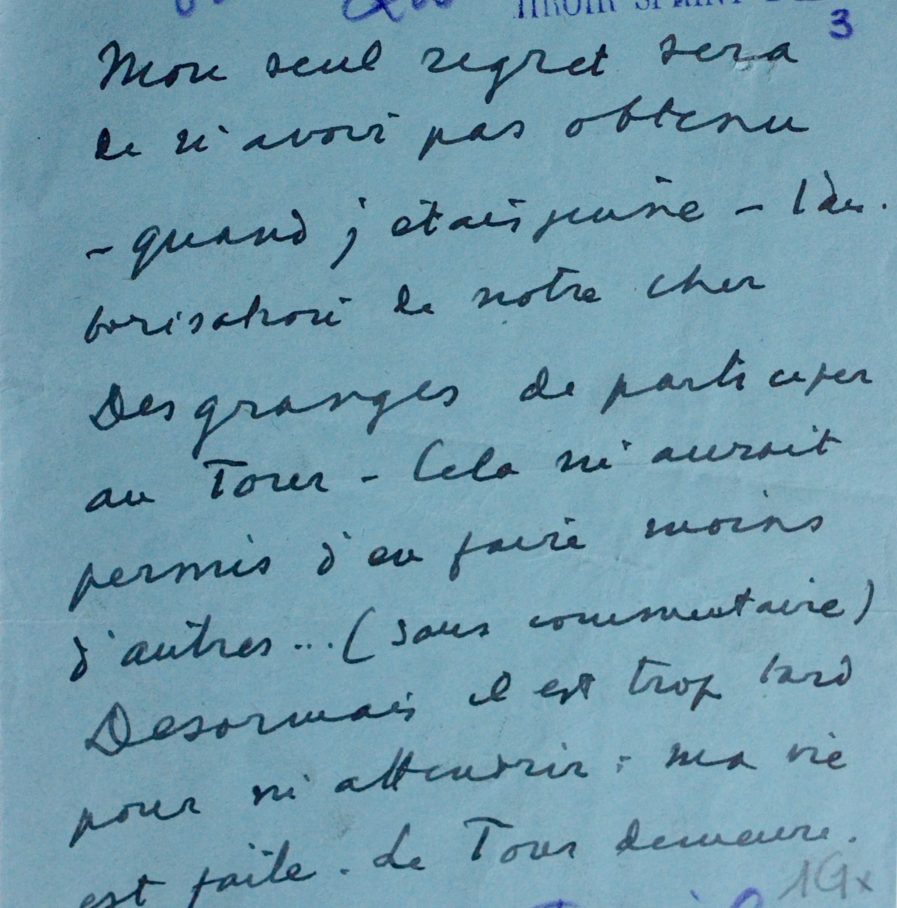 MIROIR SPRINT
3
Mon seul regret sera
de n'avoir pas obtenu
- quand j'étais jeune - l'au-
torisation de notre cher
Desgranges de participer
au Tour - Cela m'aurait
permis d'en faire moins
d'autres...(sans commentaire)
Desormais il est trop tard
pour m'attendrir : ma vie
est faite. Le Tour demeure.
1G x